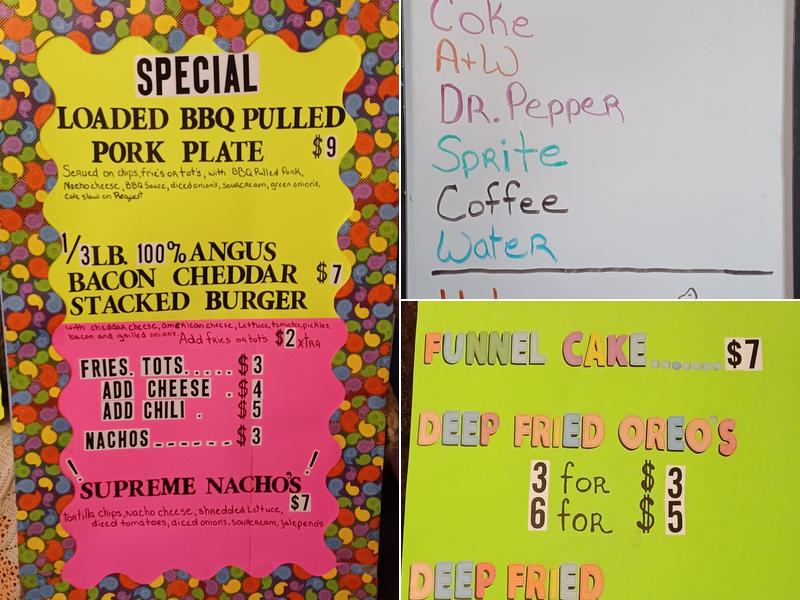 SPECIAL
LOADED BBQ PULLED
PORK PLATE $9
Served on chips, frie's or tot's, with BBQ Pulled Pork,
Nacho cheese, BBQ Sauce, diced onion's, sour cream, green onion's,
cole slaw on Request
1/3 LB. 100% ANGUS
BACON CHEDDAR $7
STACKED BURGER
with cheddar cheese, american cheese, Lettuce, tomato, pickles,
bacon and grilled onions. Add fries or tot's $2 xtRA
FRIES. TOTS.....$3
ADD CHEESE .$4
ADD CHILI . $5
NACHOS ------$3
! SUPREME NACHO'S !
$7
Tortilla chips, Nacho cheese, shredded Lettuce,
diced tomatoes, diced onions, sour cream, jalepeno's
Coke
A+W
DR. Pepper
Sprite
Coffee
Water
FUNNEL CAKE........$7
DEEP FRIED OREO'S
3 for $3
6 for $5
DEEP FRIED